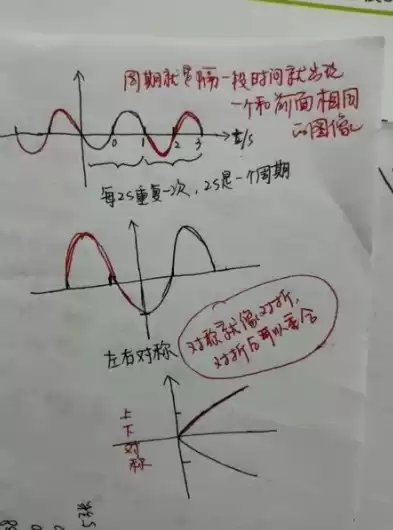 周期就是隔一段时间就出现
一个和前面相同
的图像
0 1 2 3 t/s
每2S重复一次，2S是一个周期
左右对称
对称就像对折，
对折后可以重合
上
下
对
称